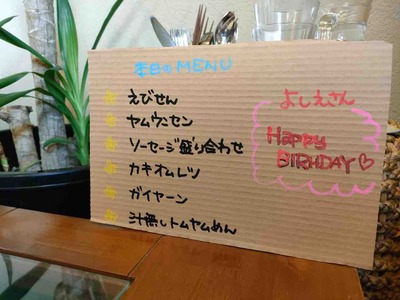 本日のMENU
えびせん
ヤムウンセン
ソーセージ盛り合わせ
カキオムレツ
ガイヤーン
汁無しトムヤムめん
よしえさん
Happy
BIRHDAY♡